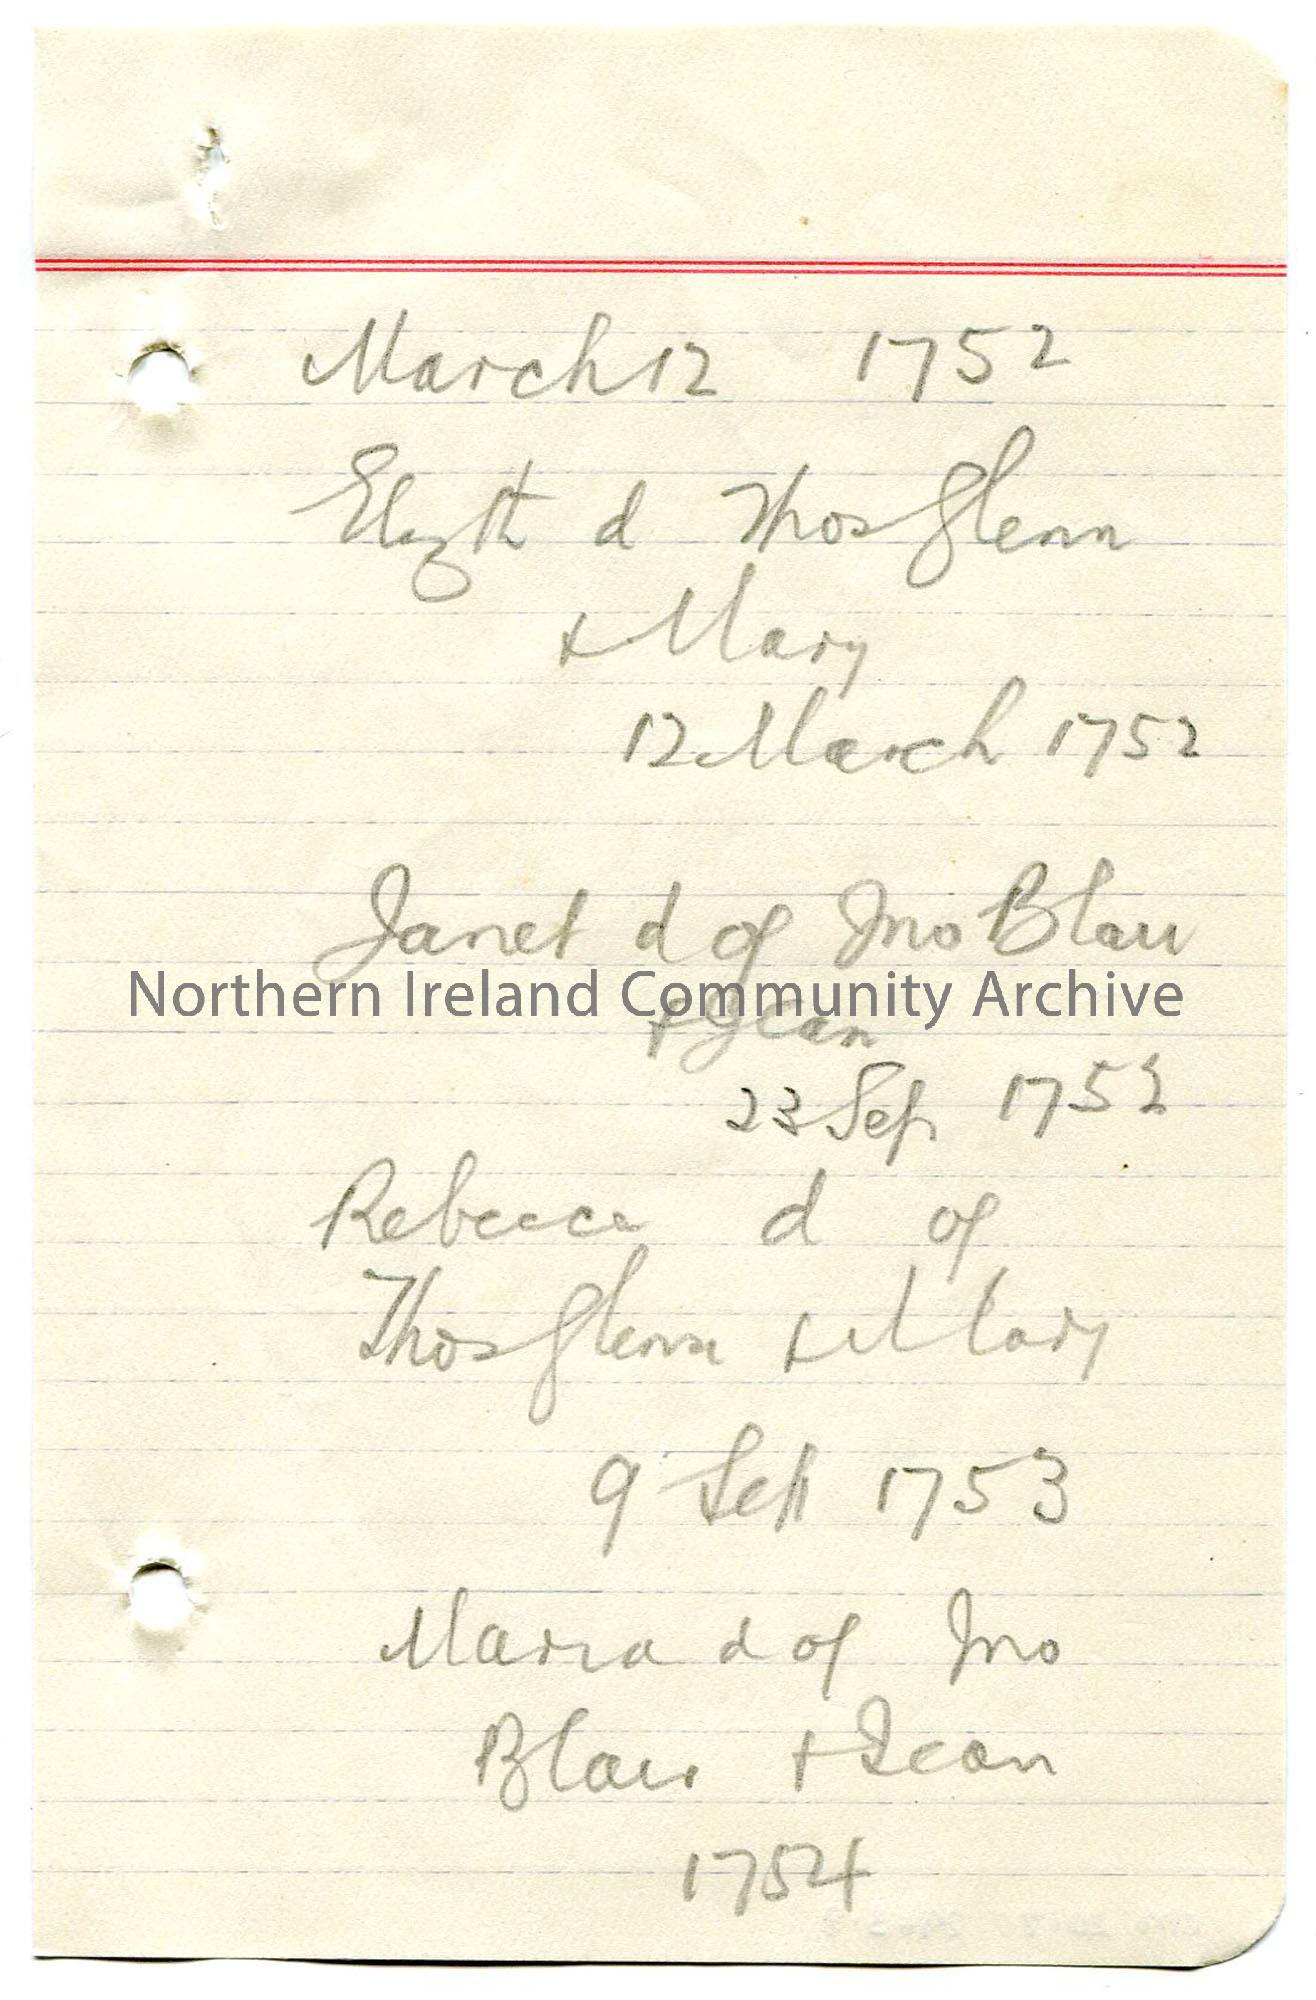 March 12 1752
Elizth d Thos Glenn
+ Mary
12 March 1752
Janet d of Jno Blair
Northern Ireland Community Archive
+ Jean
23 Sep 1752
Rebecca d of
Thos Glenn + Mary
9 Sep 1753
Maria d of Jno
Blair + Jean
1754